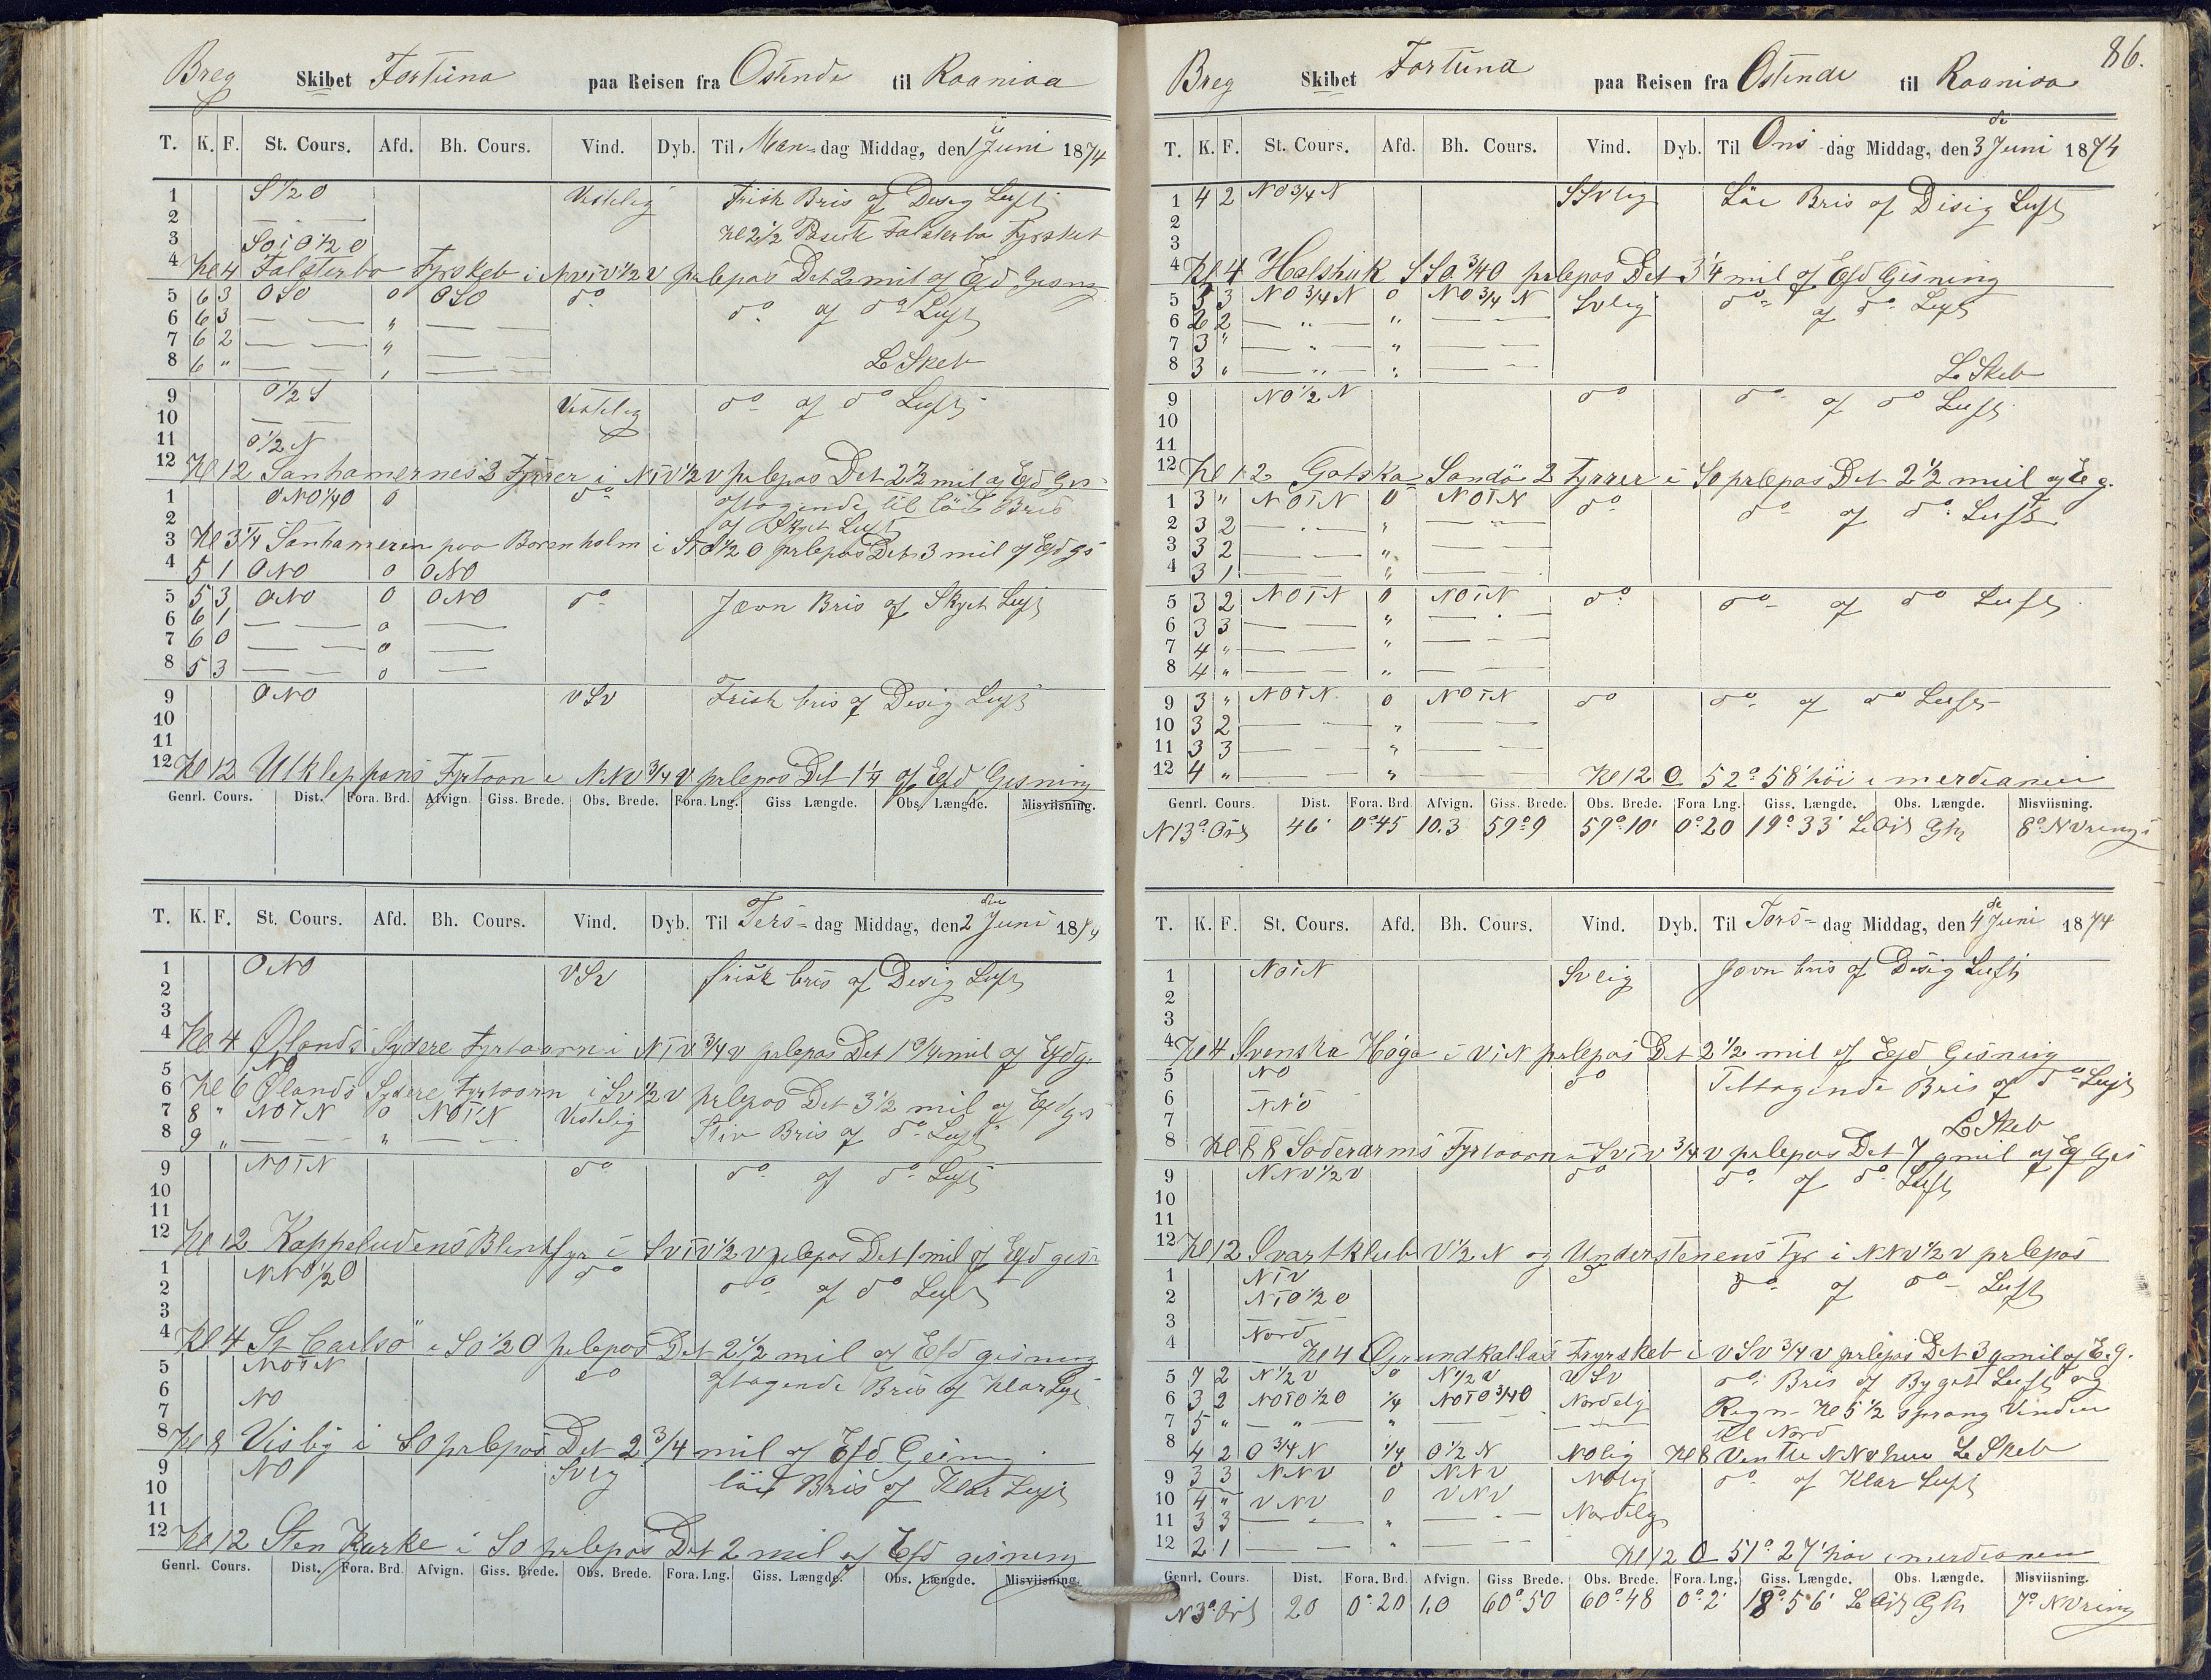 Breg Skibet Fortuna paa Reisen fra Ostende til Raaniaa
T. K. F. St. Cours. Afd. Bh. Cours. Vind. Dyb. Til Man-dag Middag, den 1 Juni 1874
1 S 1/2 O Vestelig Frisk Bris og Desig Luft
2 Kl 2 1/2 Falsterbo Fyrskib
3 SO i O 1/2 O
4 Kl 4 Falsterbo Fyrskeb i NViV 1/2 V prlepos Det 2 mil of Efd Gisng
5 6 3 OSO 0 OSO do do og do Luft
6 6 3 — — " — —
7 6 2 — — " — —
8 6 " — — " — — L Skeb
9 O 1/2 S Vestelig do og do Luft
10 —
11 O 1/2 N
12 Kl 12 Sanhamernes 2 Fyrrer i NTV 1/2 V prlepos Det 2 1/2 mil og Efd Gis
1 ONO 1/4 O 0 do aftagende til löi Bris
2 og Skyet Luft
3 Kl 3 1/4 Sanhameren paa Borenholm i STO 1/2 O prlepos Det 3 mil of Efd gs
4 5 1 ONO 0 ONO
5 5 3 ONO 0 ONO do Jævn Bris og Skyet Luft
6 6 1 — — 0 —
7 6 0 — — 0 —
8 5 3 — — 0 —
9 ONO VSV Frisk bris og Desig Luft
10
11
12 Kl 12 Utkleppans Fyrtaarn i NNV 3/4 V prlepos Det 1 1/4 of Efd Gisning
Genrl. Cours. Dist. Fora. Brd. Afvign. Giss. Brede. Obs. Brede. Fora. Lng. Giss. Længde. Obs. Længde. Misviisning.
T. K. F. St. Cours. Afd. Bh. Cours. Vind. Dyb. Til Ters-dag Middag, den 2 den Juni 1874
1 ONO VSV frisk bris og Desig Luft
2
3
4 Kl 4 Ølands Sydere Fyrtaarn i NTV 3/4 V prlepos Det 1 3/4 mil of Efd g.
5 NO
6 Kl 6 Ølands Sydere Fyrtaarn i SV 1/2 V prlepos Det 3 1/2 mil og Efd gis
7 8 " NOTN 0 NOTN Vestelig Stiv Bris og do Luft
8 9 " — — " — —
9 NOTN do do og do Luft
10
11
12 Kl 12 Kappeludens Blinkfyr i SVTV 1/2 V prlepos Det 1 mil of Efd gisn
1 NNO 1/2 O do do og do Luft
2
3
4 Kl 4 St Carlsö i SO 1/2 O prlepos Det 2 1/2 mil og Efd gisning
5 NOTN do aftagende Bris og Klar Luft
6 NO
7
8 Kl 8 Visby i SO prlepos Det 2 3/4 mil of Efd Geisng
9 NO SVlg löi Bris og Klar Luft
10
11
12 Kl 12 Sten Kørke i SO prlepos Det 2 mil of Efd gisning
Genrl. Cours. Dist. Fora. Brd. Afvign. Giss. Brede. Obs. Brede. Fora. Lng. Giss. Længde. Obs. Længde. Misviisning.
86.
Breg Skibet Fortuna paa Reisen fra Ostende til Raaniaa
T. K. F. St. Cours. Afd. Bh. Cours. Vind. Dyb. Til Ons-dag Middag, den 3 de Juni 1874
1 4 2 NO 3/4 N SSVlig Löi Bris og Disig Luft
2
3
4 Kl 4 Halshuk SSO 3/4 O prlepos Det 3 1/4 mil of Efd Gisning
5 5 3 NO 3/4 N 0 NO 3/4 N SVlig do og do Luft
6 2 2 — " — " — —
7 3 " — " — " — —
8 3 " — " — " — — L Skeb
9 NO 1/2 N do do og do Luft
10
11
12 Kl 12 Gotska Sandö 2 Fyrrer i SO prlepos Det 2 1/2 mil og E g.
1 3 " NOTN 0 NOTN do do og do Luft
2 3 2 — — " — —
3 3 2 — — " — —
4 3 1 — — " — —
5 3 2 NOTN 0 NOTN do do og do Luft
6 3 3 — — " — —
7 4 " — — " — —
8 4 " — — " — —
9 3 " NOTN 0 NOTN do do og do Luft
10 3 2 — — " — —
11 3 3 — — " — —
12 4 " — — " — — Kl 12 O 52° 58' höi i merdianen
Genrl. Cours. Dist. Fora. Brd. Afvign. Giss. Brede. Obs. Brede. Fora Lng. Giss. Længde. Obs. Længde. Misviisning.
N 13° Ost 46' 0°45 10.3 59°9 59°10' 0°20 19°33' L Ost Gh 8° NVrings
T. K. F. St. Cours. Afd. Bh. Cours. Vind. Dyb. Til Tors-dag Middag, den 4 de Juni 1874
1 NOTN SVlig Jævn bris og Desig Luft
2
3
4 Kl 4 Svenska Høga i ViN prlepos Det 2 1/2 mil of Efd Gisning
5 NO do Teltagende Bris og do Luft
6 NNO
7 L Skeb
8 Kl 8 Söderarms Fyrtaarn i SVTV 3/4 V prlepos Det 7 qmil og Ef Gis
9 NNV 1/2 V do do og do Luft
10
11
12 Kl 12 Svartklub V 1/2 N og Understenens Fyr i NNV 1/2 V prlepos
1 NTV do do og do Luft
2 NTO 1/2 O
3 Nord
4 Kl 4 Grundkallans Fyrskeb i VSV 3/4 V prlepos Det 3 qmil of E. g.
5 7 2 N 1/2 V 0 N 1/2 V VSV do Bris og Byget Luft og
6 3 2 NOTO 1/2 O 1/4 NOTO 3/4 O Nordelg Regn Kl 5 1/2 sprang Vinden
7 5 " — " — " — — til Nord
8 4 2 O 3/4 N 1/4 O 1/2 N NOlig Kl 8 Vente NNV L Skeb
9 3 3 NNV 0 NNV NOlig do og Klar Luft
10 4 " VNV 0 VNV Nordelg
11 3 3 — — " — —
12 2 1 — — " — — Kl 12 O 51° 27' höi i merdianen
Genrl. Cours. Dist. Fora. Brd. Afvign. Giss Brede. Obs. Brede. Fora. Lng. Giss. Længde. Obs. Længde. Misviisning.
N 3° Ost 20 0°20 1,0 60°50 60°48 0°2' 18°56' L Ost Gh 7° NVring